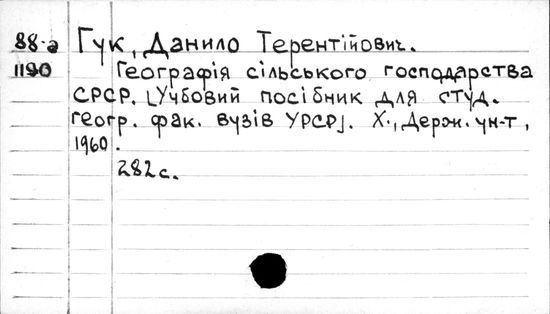 88-а Гук, Данило Терентійович.
1190 Географія сільського господарства
СРСР. [Учбовий посібник для студ.
геогр. фак. вузів УРСР]. Х., Держ. ун-т,
1960.
282 с.